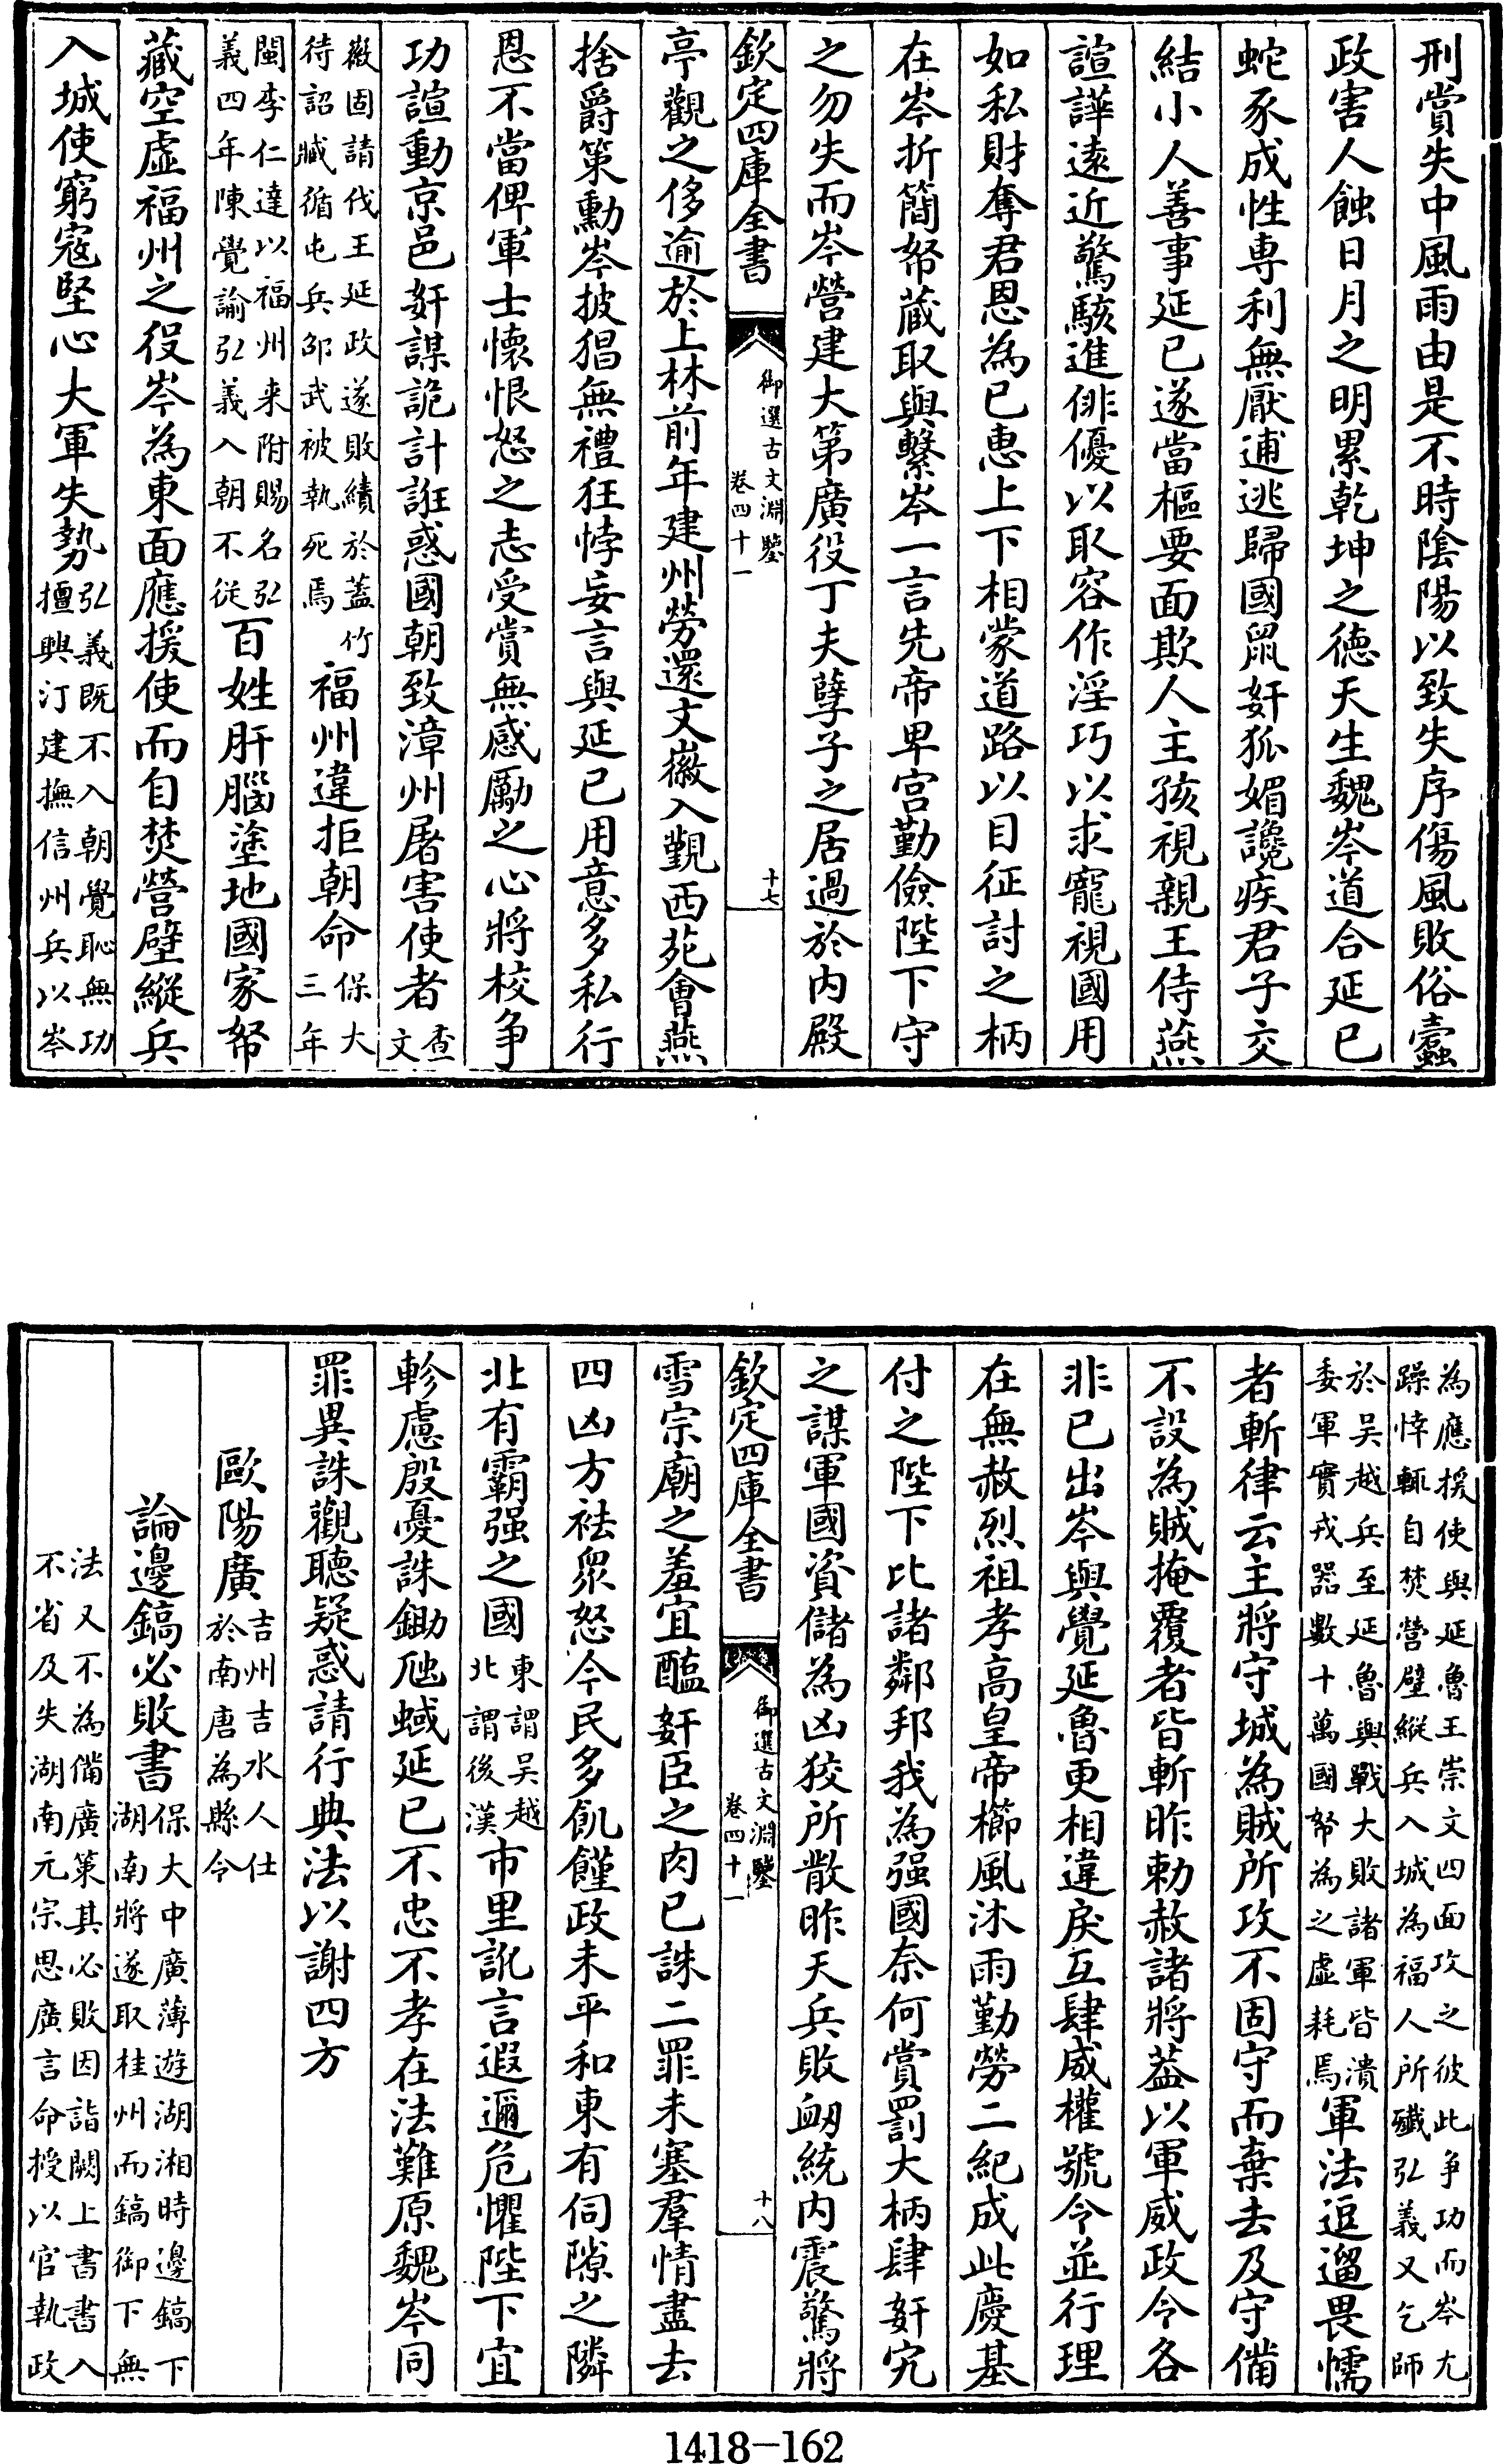 刑賞失中風雨由是不時陰陽以致失序傷風敗俗蠹
政害人蝕日月之明累乾坤之德天生魏岑道合延已
蛇豕成性専利無厭逋逃歸國鼠奸狐媚讒疾君子交
結小人善事延已遂當樞要面欺人主孩視親王侍燕
諠譁遠近驚駭進俳優以取容作淫巧以求寵視國用
如私財奪君恩為已惠上下相蒙道路以目征討之柄
在岑折簡帑藏取與繫岑一言先帝卑宫勤儉陛下守
之勿失而岑營建大第廣役丁夫孽子之居過於内殿
欽定四庫全書
御選古文淵鑒
卷四十一
十七
亭觀之侈逾於上林前年建州勞還文徽入覲西苑會燕
捨爵策勳岑披猖無禮狂悖妄言與延已用意多私行
恩不當俾軍士懷恨怒之志受賞無感勵之心將校争
功諠動京邑奸謀詭計誑惑國朝致漳州屠害使者查
文
徽固請伐王延政遂敗績於蓋竹
待詔臧循屯兵邵武被執死焉福州違拒朝命保大
三年
閩李仁達以福州来附賜名弘
義四年陳覺諭弘義入朝不從百姓肝腦塗地國家帑
藏空虛福州之役岑為東面應援使而自焚營壁縱兵
入城使窮寇堅心大軍失勢弘義既不入朝覺恥無功
擅興汀建撫信州兵以岑
為應援使與延魯王崇文四面攻之彼此争功而岑尤
躁悖輒自焚營壁縱兵入城為福人所殲弘義又乞師
於吴越兵至延魯與戰大敗諸軍皆潰
委軍實戎器數十萬國帑為之虚耗焉軍法逗遛畏懦
者斬律云主將守城為賊所攻不固守而棄去及守備
不設為賊掩覆者皆斬昨勅赦諸將葢以軍威政令各
非已出岑與覺延魯更相違戾互肆威權號令並行理
在無赦烈祖孝高皇帝櫛風沐雨勤勞二紀成此慶基
付之陛下比諸鄰邦我為强國奈何賞罰大柄肆奸宄
之謀軍國資儲為凶狡所散昨天兵敗衂統内震驚將
欽定四庫全書
御選古文淵鑒
卷四十一
十八
雪宗廟之羞宜醢奸臣之肉已誅二罪未塞羣情盡去
四凶方袪衆怒今民多飢饉政未平和東有伺隙之隣
北有霸强之國東謂吴越
北謂後漢市里訛言遐邇危懼陛下宜
軫慮殷憂誅鋤虺蜮延已不忠不孝在法難原魏岑同
罪異誅觀聽疑惑請行典法以謝四方
歐陽廣吉州吉水人仕
於南唐為縣令
論邊鎬必敗書保大中廣薄遊湖湘時邊鎬下
湖南將遂取桂州而鎬御下無
法又不為備廣策其必敗因詣闕上書書入
不省及失湖南元宗思廣言命授以官執政
1418—162